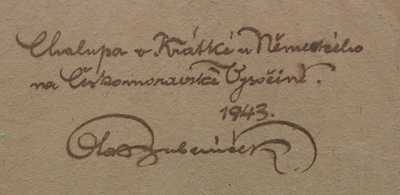 Chalupa v Krátké u Německého
na Českomoravské Vysočině.
1943.